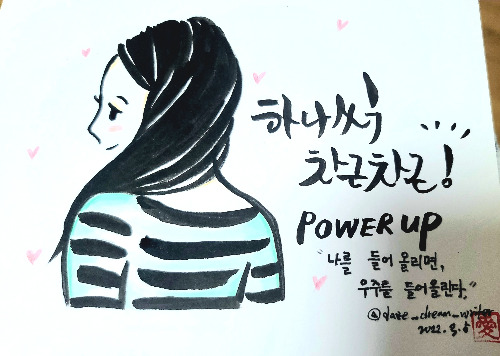 하나씩
차근차근!
POWER UP
"나를 들어 올리면,
우주를 들어올린다."
@dare_dream_writer
2022. 9. 5
愛